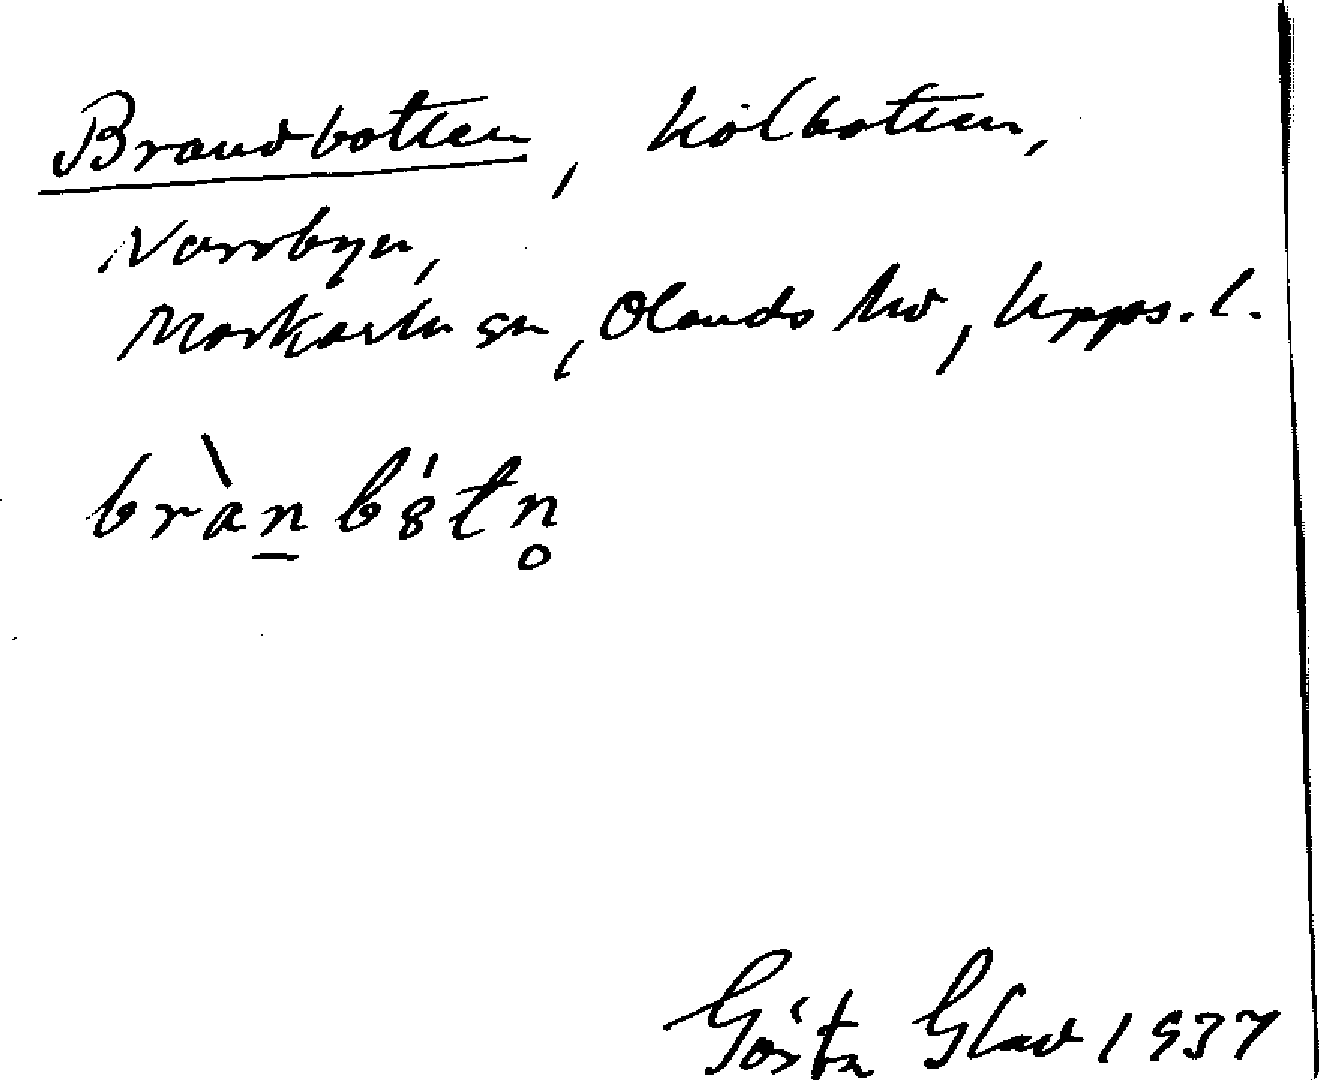 Brandbotten, kolbotten,
Norrbyn,
Morkarla sn, Olands hd, Upps. l.
bràn bótn̥
Gösta Glad 1937